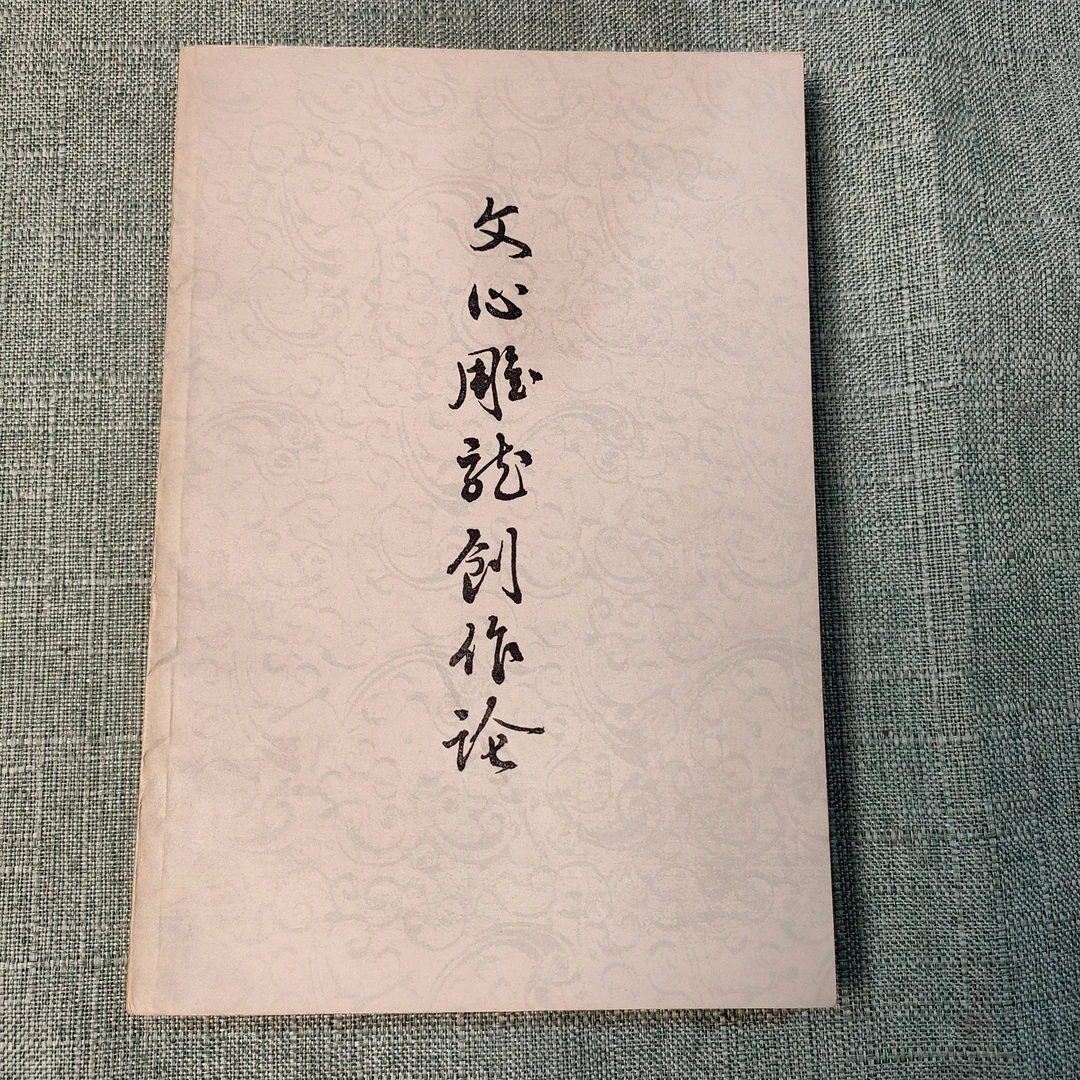 文心雕龙创作论